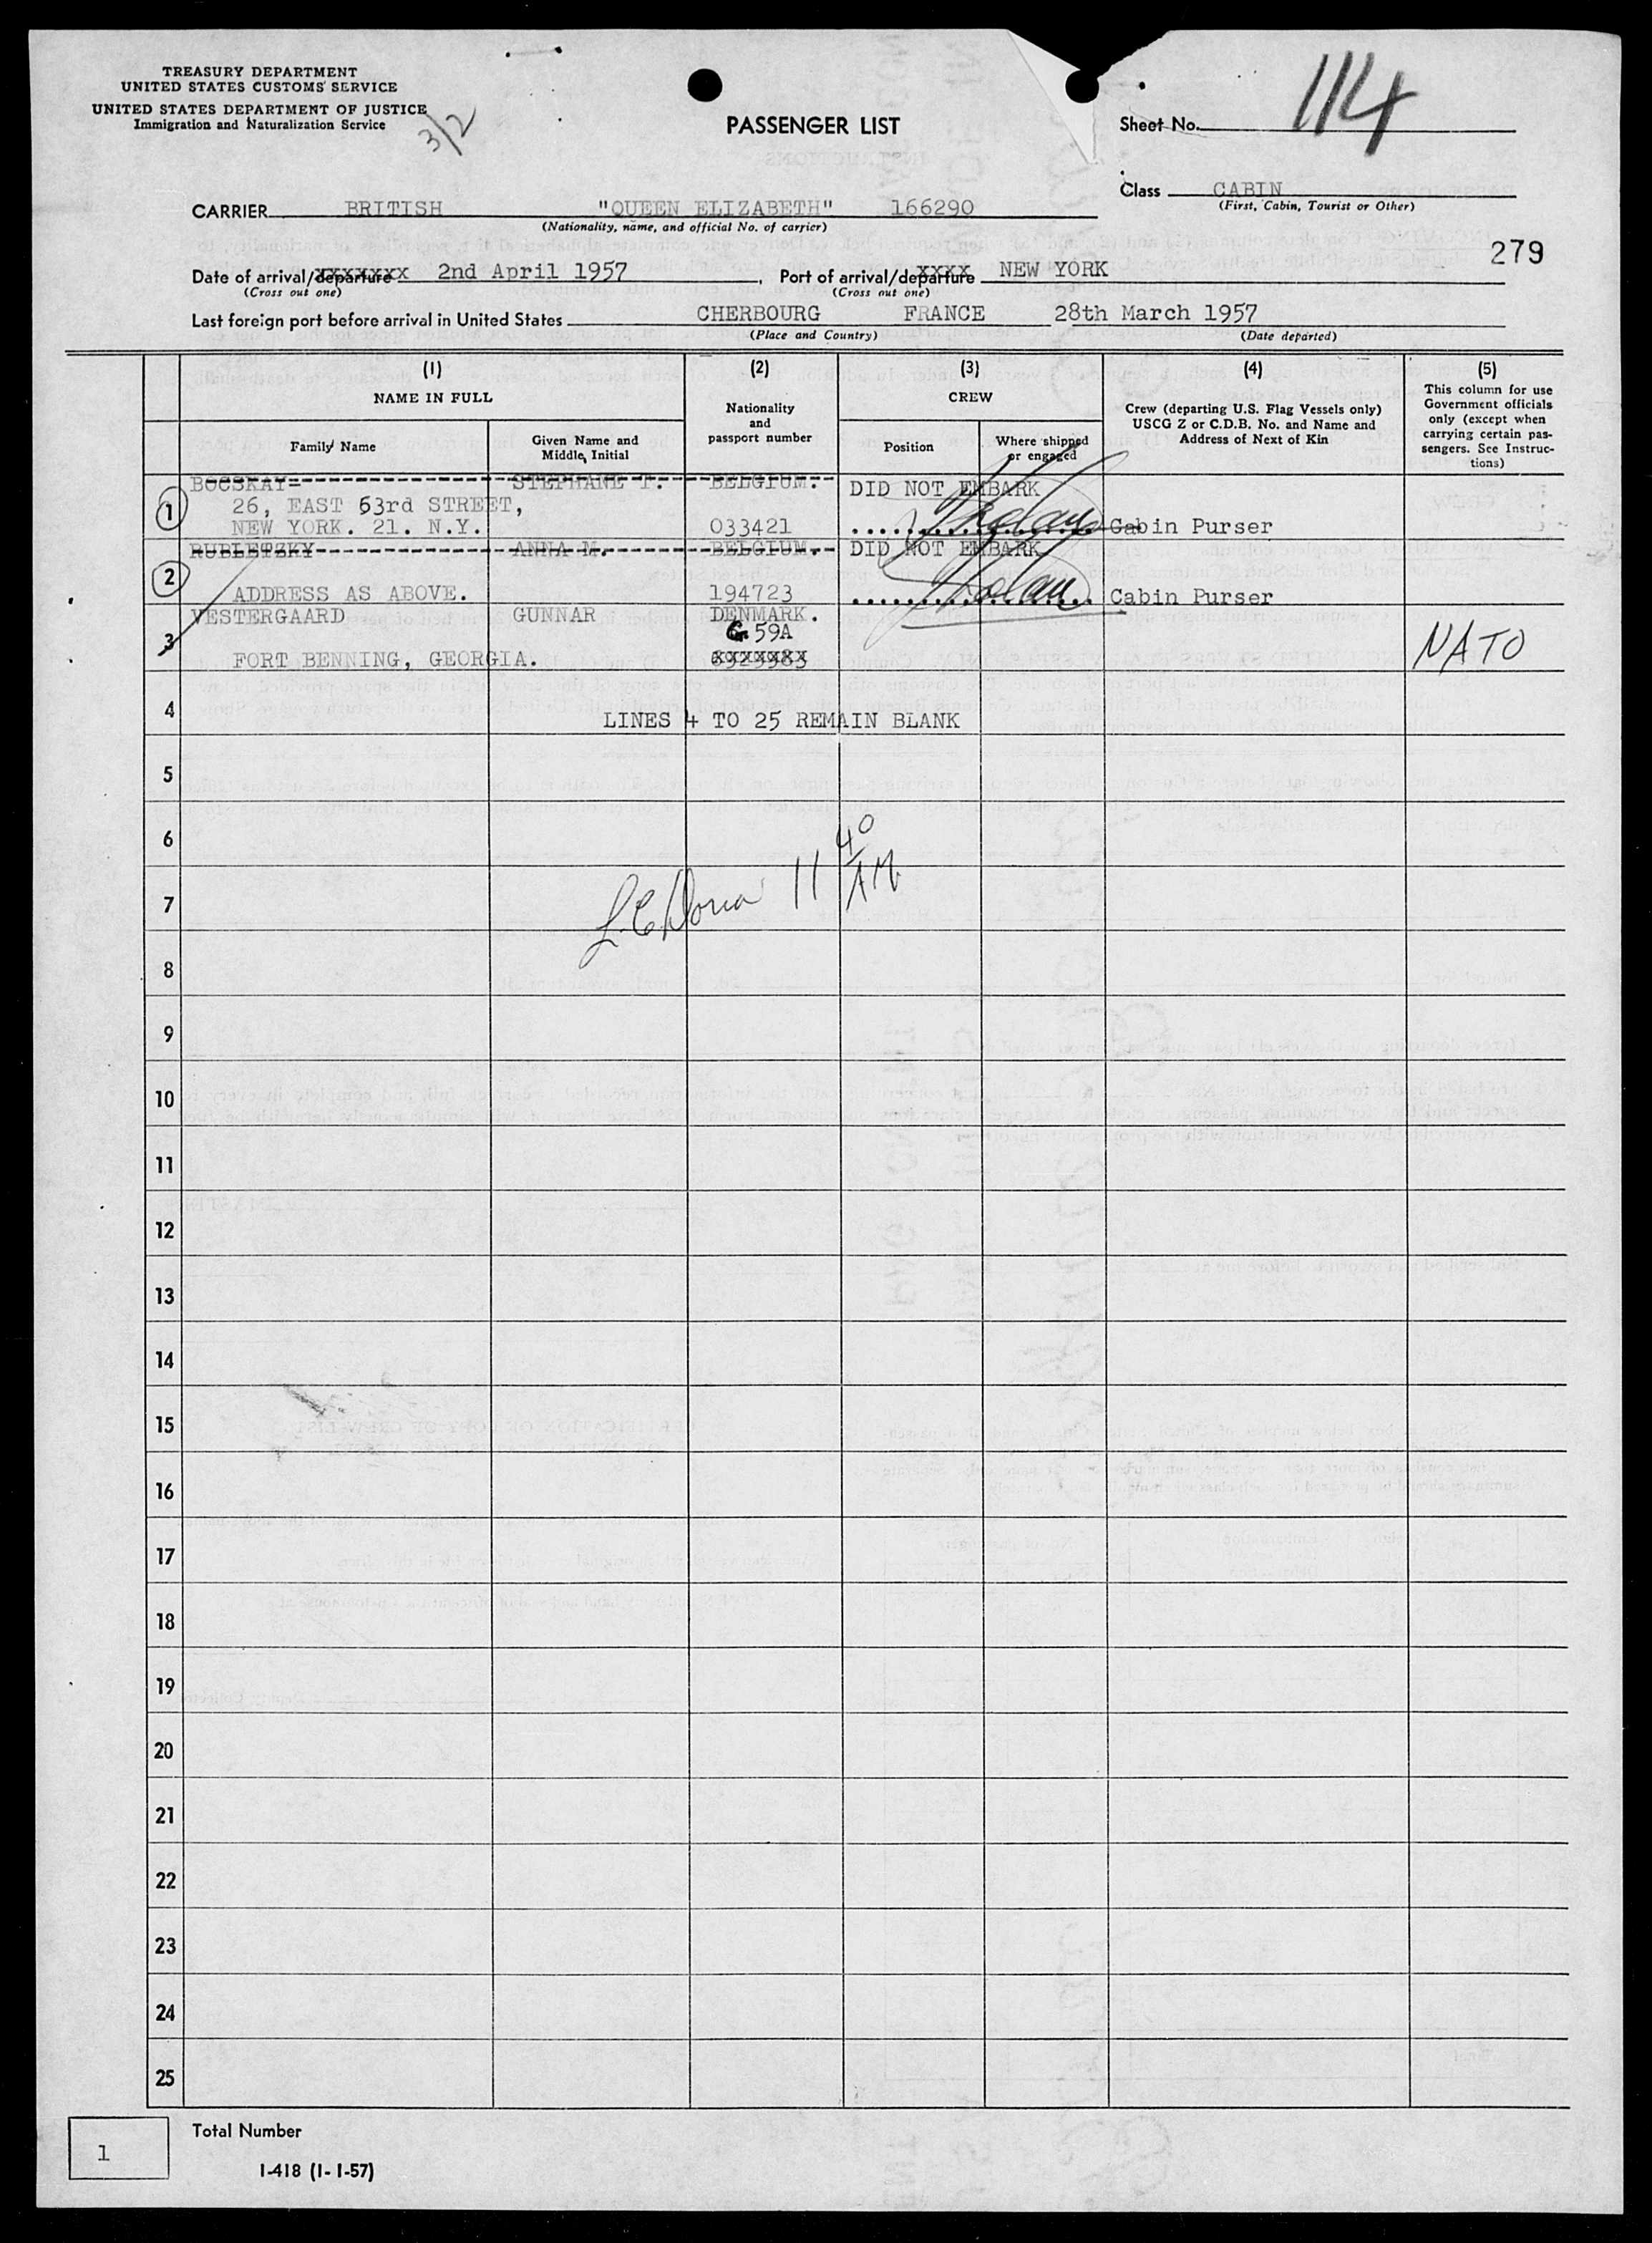 TREASURY DEPARTMENT
UNITED STATES CUSTOMS SERVICE
UNITED STATES DEPARTMENT OF JUSTICE
Immigration and Naturalization Service
3/2
PASSENGER LIST
Sheet No. 114
Class CABIN
(First, Cabin, Tourist or Other)
CARRIER BRITISH "QUEEN ELIZABETH" 166290
(Nationality, name, and official No. of carrier)
279
Date of arrival/departure 2nd April 1957, Port of arrival/departure NEW YORK
(Cross out one) (Cross out one)
Last foreign port before arrival in United States CHERBOURG FRANCE 28th March 1957
(Place and Country) (Date departed)
(1) (2) (3) (4) (5)
NAME IN FULL
Nationality and passport number
CREW
Crew (departing U.S. Flag Vessels only) USCG Z or C.D.B. No. and Name and Address of Next of Kin
This column for use Government officials only (except when carrying certain passengers. See Instructions)
Family Name Given Name and Middle Initial Position Where shipped or engaged
1 BOCSKAY STEPHANE T. BELGIUM. DID NOT EMBARK
26, EAST 63rd STREET,
NEW YORK. 21. N.Y. 033421 Cabin Purser
2 RUBLETZKY ANNA M. BELGIUM. DID NOT EMBARK
ADDRESS AS ABOVE. 194723 Cabin Purser
3 VESTERGAARD GUNNAR DENMARK.
G 59A
FORT BENNING, GEORGIA. NATO
4 LINES 4 TO 25 REMAIN BLANK
5
6
7 11 40 AM
8
9
10
11
12
13
14
15
16
17
18
19
20
21
22
23
24
25
1 Total Number
I-418 (1-1-57)